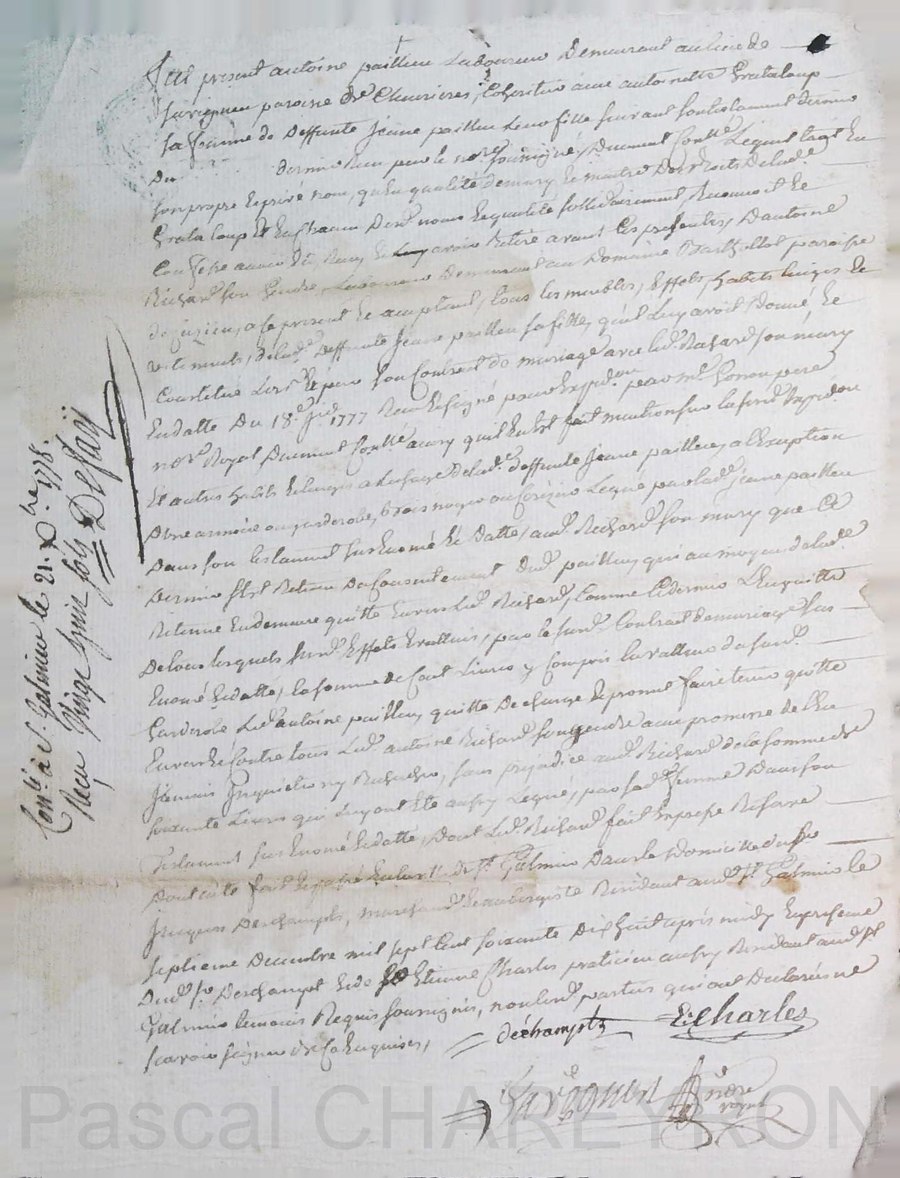 Fut present antoine paillieu Laboureur Demeurant au lieu de
paroisse De Chevrieres, Cohéritier avec antoinette Grataloup
sa femme de Deffunte Jeane paillieu Leur fille suivant son testament dernier
Du dernier reçu par le no.re soussigné, Duement Conllé Lequel tant En
son propre Et privé nom, qu'En qualité de mary Et maitre Des Droits De lade
Grataloup Et En chacun Des.d noms Et qualité sollidairement, Reconnoit Et
Confesse avoir Eté Reçu Et avoir Retiré avant Ces presentes, D'antoine
Richard son Gendre, Laboureur Demeurant au Domaine Barthollot paroisse
de present Et acceptant, tous les meubles, Effets, habits Linges Et
vetements, de lad.e Deffunte Jeane paillieu sa fille, qu'il Luy avoit Donné Et
Constitué Lors Et par son Contrat de mariage avec led. Richard son mary
En datte Du 18.e 1777 Reçu Et signé pour Expedon par me pere
no.re Royal Duement Conllé aussy qu'il En Est fait mention sur la sus.d Expedon
Et autres habits Et Linges a Lusage de lad.e deffunte Jeane paillieu, a l'Exception
D'une armoire ou garderobe, bois noyer ou Cerizier Legué par lad.e Jeane paillieu
Dans son testament sus Enomé Et Datté, aud. Richard son mary que Ce
Dernier s'Est Retenu Du Consentement dud. paillieu, qui au moyen de lad.e
Retenue En demeure quitte Envers Led. Richard, Comme Ce dernier L'En quitte
De tous lesquels sus.d Effets Evallués, par le sus.d Contrat de mariage sus
Enomé Et datté, la somme de Cent Livres y Compris la valleur du sus.d
Garderobe Led. antoine paillieu quitte Decharge Et promet faire tenir quitte
Envers Et Contre tous Led. antoine Richard son gendre avec promesse de l'En
Jamais Inquietter ny Rechercher, sans prejudice aud. Richard de la somme de
soixante Livres qui Luy ont Eté aussy Legué, par sad. femme Dans son
testament sus Enomé Et datté, Dont Led. Richard fait Expresse Reserve
Dont acte fait Et passé En la ville de St Galmier Dans le Domicille du sr
Jacques Deschamps, marchand Et aubergiste Residant aud. St Galmier le
septieme Decembre mil sept Cent soixante Dix huit après midy En presence
Dud. sr Deschamps Et de sr Etienne Charles praticien aussy Residant aud. St
Galmier temoins Requis soussignés, non Lesd. parties qui ont Declaré ne
scavoir signer de Ce Enquises,
déchamptz E. Charles
no.re royal
Con.lé à St. Galmier le 21. Xbre 1778.
Reçu Vingt huit sols Defay
Pascal CHAREYRON